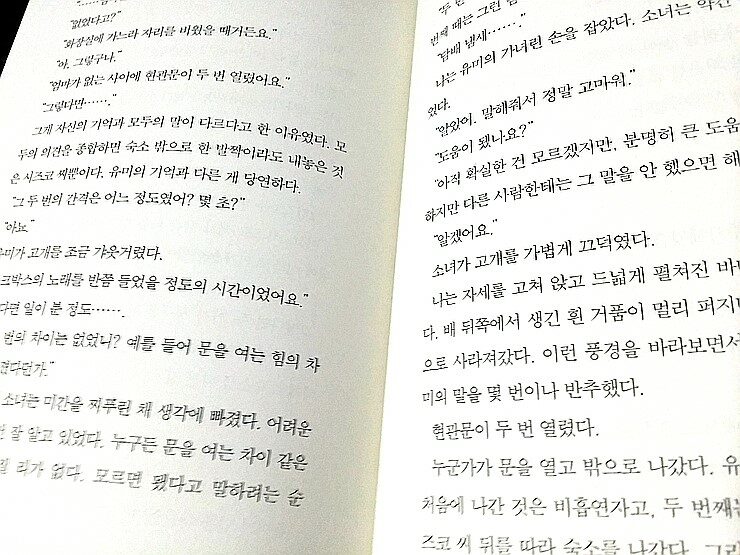 "없었다고?"
"화장실에 가느라 자리를 비웠을 때거든요."
"아, 그렇구나."
"엄마가 없는 사이에 현관문이 두 번 열렸어요."
"그렇다면……."
그게 자신의 기억과 모두의 말이 다르다고 한 이유였다. 모
두의 의견을 종합하면 숙소 밖으로 한 발짝이라도 내놓은 것
은 시즈코 씨뿐이다. 유미의 기억과 다른 게 당연하다.
"그 두 번의 간격은 어느 정도였어? 몇 초?"
"아뇨."
유미가 고개를 조금 갸웃거렸다.
크박스의 노래를 반쯤 들었을 정도의 시간이었어요."
다면 일이 분 정도…….
번의 차이는 없었니? 예를 들어 문을 여는 힘의 차
렸다던가."
소녀는 미간을 찌푸린 채 생각에 빠졌다. 어려운
잘 알고 있었다. 누구든 문을 여는 차이 같은
리가 없다. 모르면 됐다고 말하려는 순
번째 때는 그런
"담배 냄새……."
나는 유미의 가녀린 손을 잡았다. 소녀는 약간
있다.
"알았어. 말해줘서 정말 고마워."
"도움이 됐나요?"
"아직 확실한 건 모르겠지만, 분명히 큰 도움
하지만 다른 사람한테는 그 말을 안 했으면 해
"알겠어요."
소녀가 고개를 가볍게 끄덕였다.
나는 자세를 고쳐 앉고 드넓게 펼쳐진 바
다. 배 뒤쪽에서 생긴 흰 거품이 멀리 퍼지
으로 사라져갔다. 이런 풍경을 바라보면서
미의 말을 몇 번이나 반추했다.
현관문이 두 번 열렸다.
누군가가 문을 열고 밖으로 나갔다. 유
처음에 나간 것은 비흡연자고, 두 번째는
즈코 씨 뒤를 따라 숙소를 나갔다. 그리